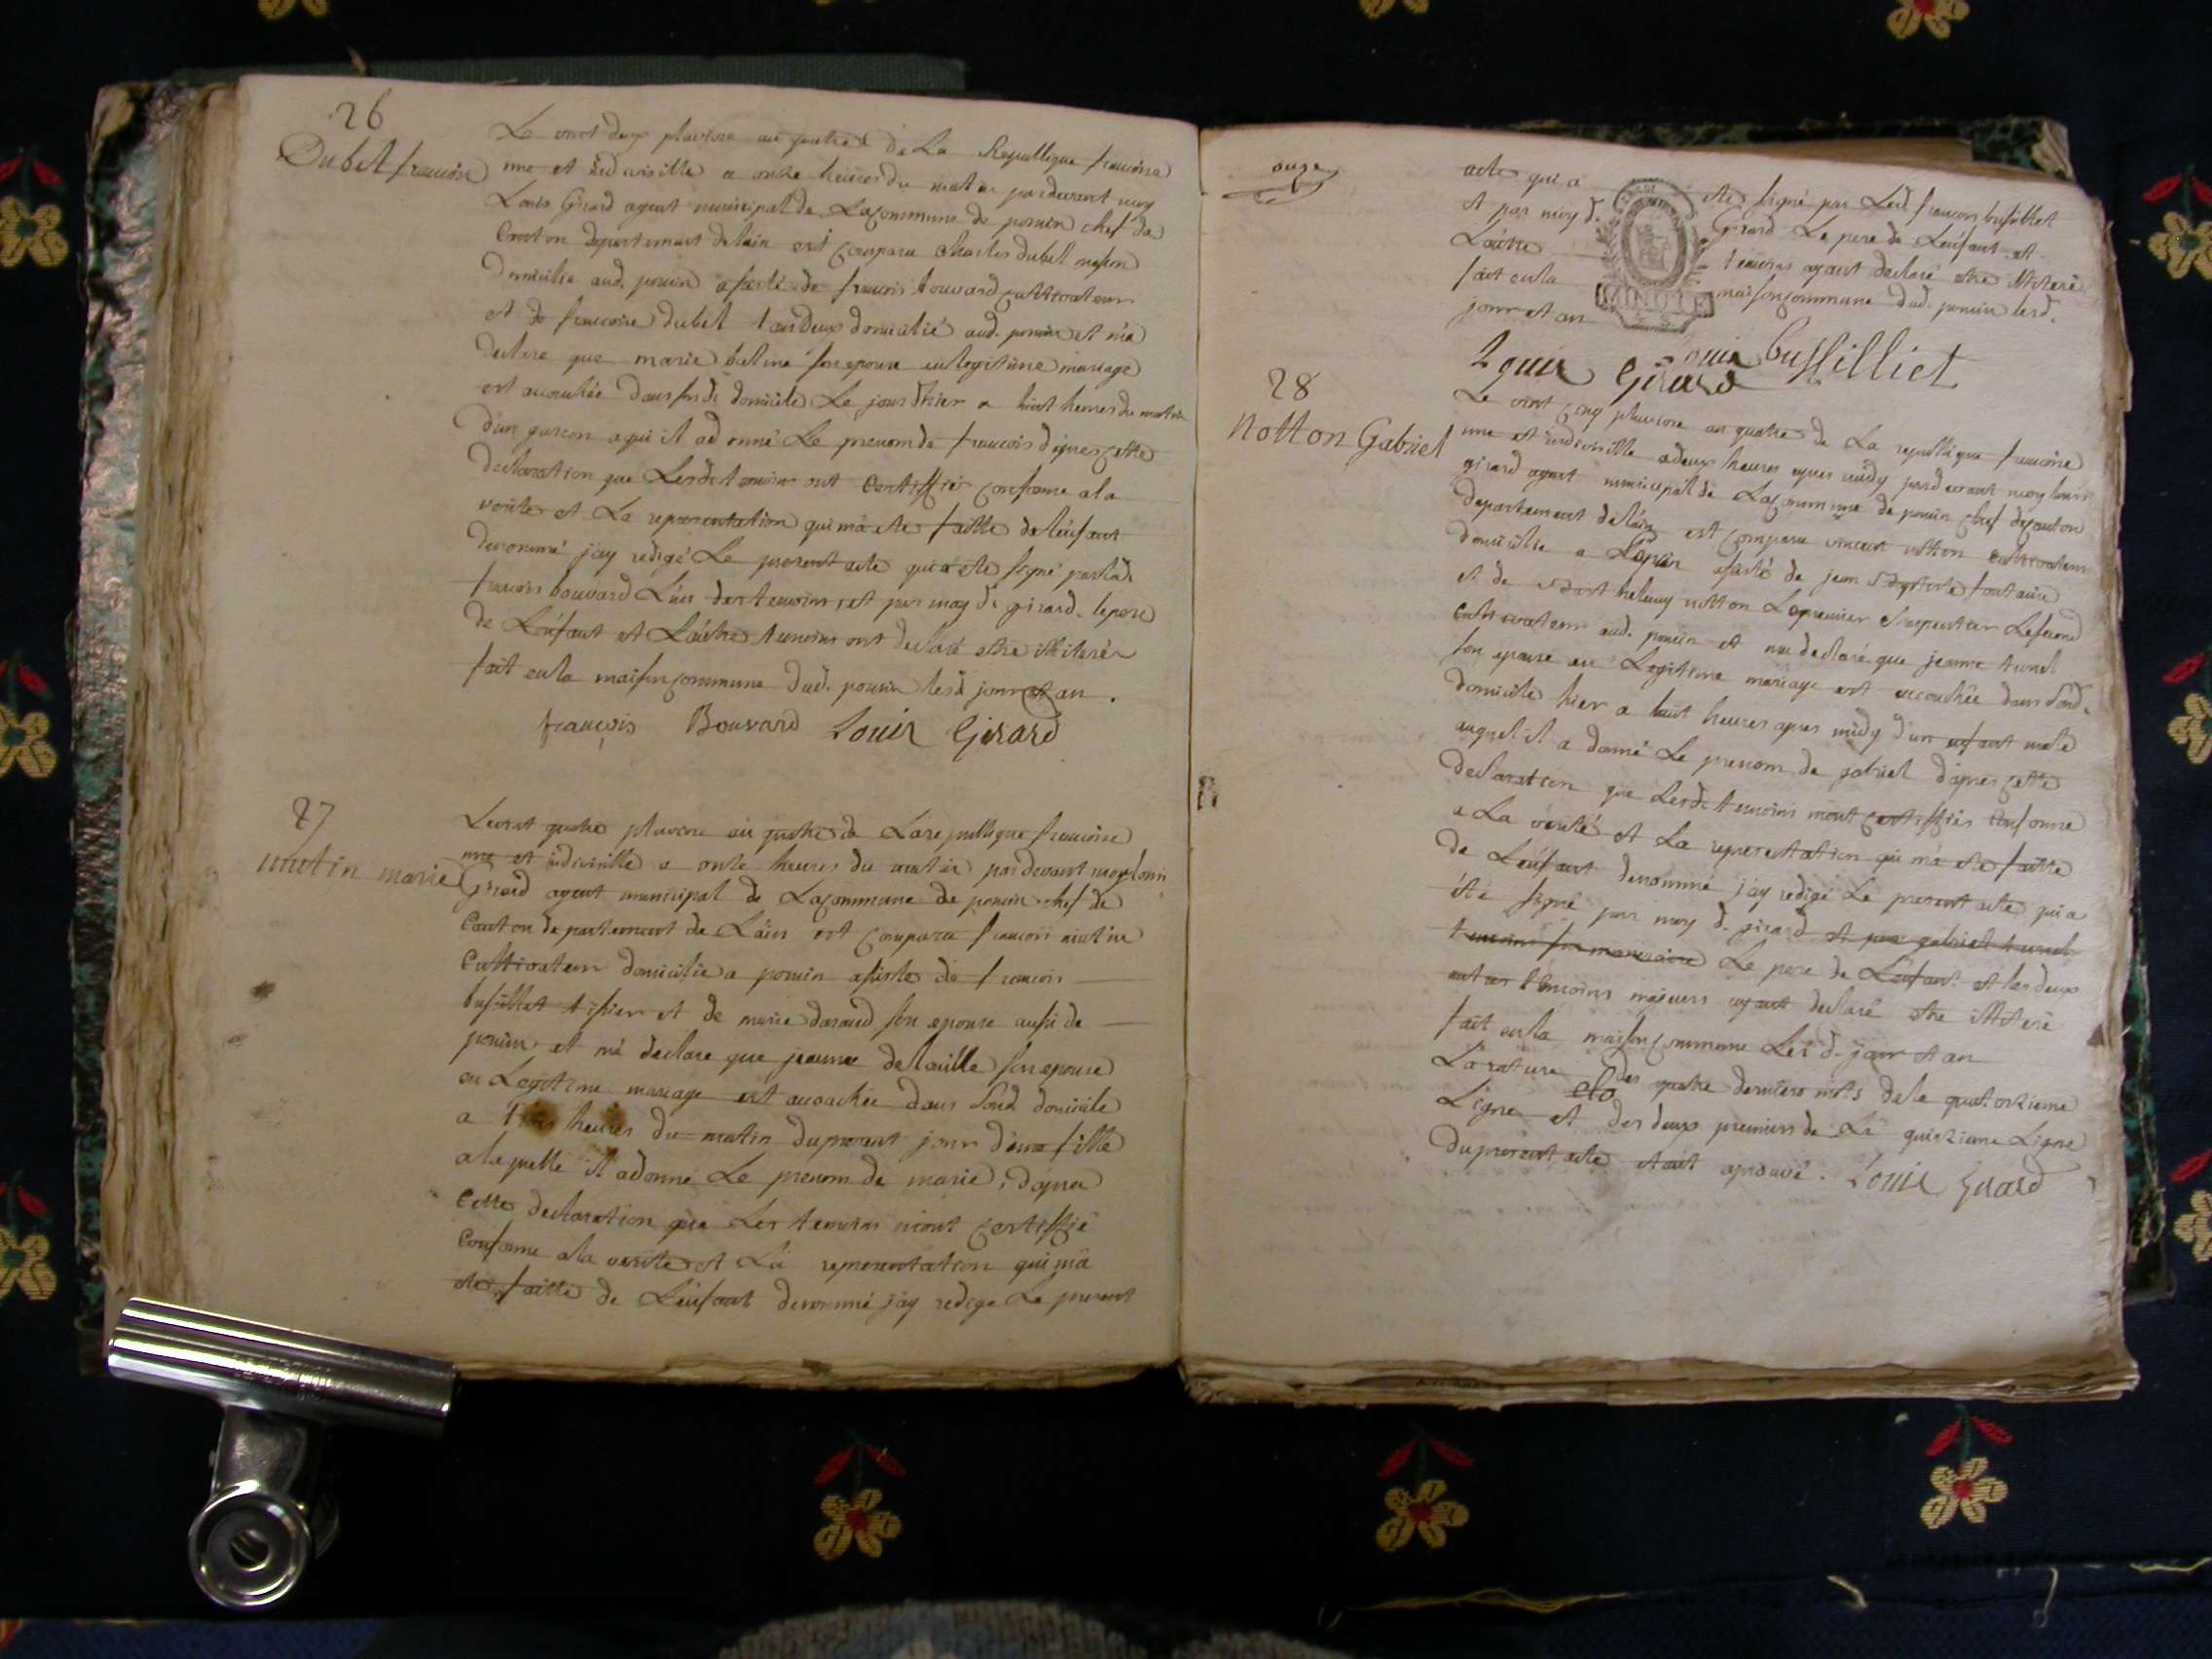 26
Dubet francois
Le vint deux pluviose an quatre de La Republique francoise
une et indivisille a onze heures du matin pardevant moy
Louis Girard agent municipal de La commune de poncin chef de
Canton departement de lain est comparu Charles dubet masson
domicilie aud. poncin assisté de francois bouvard cultivateur
et de francoise dubet tous deux domicilié aud. poncin et ma
declare que marie son epouse en legitime mariage
est accouchée dans sondt domicile Le jour dhier a huit heures du matin
d'un garcon a qui il a donné Le prenom de francois d'apres cette
declaration que Lesdt temoins ont certiffiés conforme a la
verite et La representation qui ma ete faitte de lenfant
denommé jay redigé Le present acte qui a ete signé par led.
francois bouvard L'un des temoins, et par moy d. girard. le pere
de Lenfant et Lautre temoins ont declaré etre illiterés
fait en la maison commune dud. poncin lesd jour et an.
françois Bouvard Louis Girard
27
mutin marie
Le vint quatre pluviose an quatre de La republique francoise
une et indivisille a onze heures du matin pardevant moy louis
Girard agent municipal de La commune de poncin chef de
Canton departement de Lain est comparu francois mutin
Cultivateur domicilié a poncin assisté de francois
bussillet tissier et de marie daraud son epouse aussi de
poncin. et ma declare que jeanne delaville son epouse
en Legitime mariage est accouchée dans Sond. domicile
a trois heures du matin du present jour d'une fille
a laquelle il a donné Le prenom de marie, d'apres
Cette declaration que Les temoins mont certiffié
Conforme a la verite et La representation qui ma
ete faitte de Lenfant denommé jay redige Le present
onze
acte qui a ete signé par Led. francois bussillet
et par moy d. Girard Le pere de Lenfant et
Lautre temoins ayant declaré etre illiteré
fait en la maison commune dud. poncin lesd.
jour et an
MINUTE
Louis Girard bussilliet
28
Notton Gabriel
Le vint cinq pluviose an quatre de La republique francoise
une et indivisille a deux heures apres midy pardevant moy louis
girard agent municipal de La commune de poncin chef de canton
departement de lain est comparu vincent notton Cultivateur
domicilie a assisté de jean Baptiste fontaine
et de Bart helemy notton Le premier Charpentier Le second
Cultivateur aud. poncin et ma declaré que jeanne tunel
son epouse en Legitime mariage est accouchée dans Sond.
domicile hier a huit heures apres midy d'un enfant male
auquel il a donné Le prenom de gabriel d'apres cette
declaration que Lesdt temoins mont certiffiés Conforme
a La verité et La representation qui ma ete faitte
de Lenfant denommé jay redigé Le present acte qui a
été signé par moy d. girard et par gabriel tunel
temoins Le pere de Lenfant et les deux
autres temoins majeurs ayant declaré etre illiteré
fait en la maison commune Les d. jour et an
La rature des quatre derniers mots de la quatorzieme
Ligne et des deux premiers de La quinzieme Ligne
du present acte etant aprouvé. Louis Girard